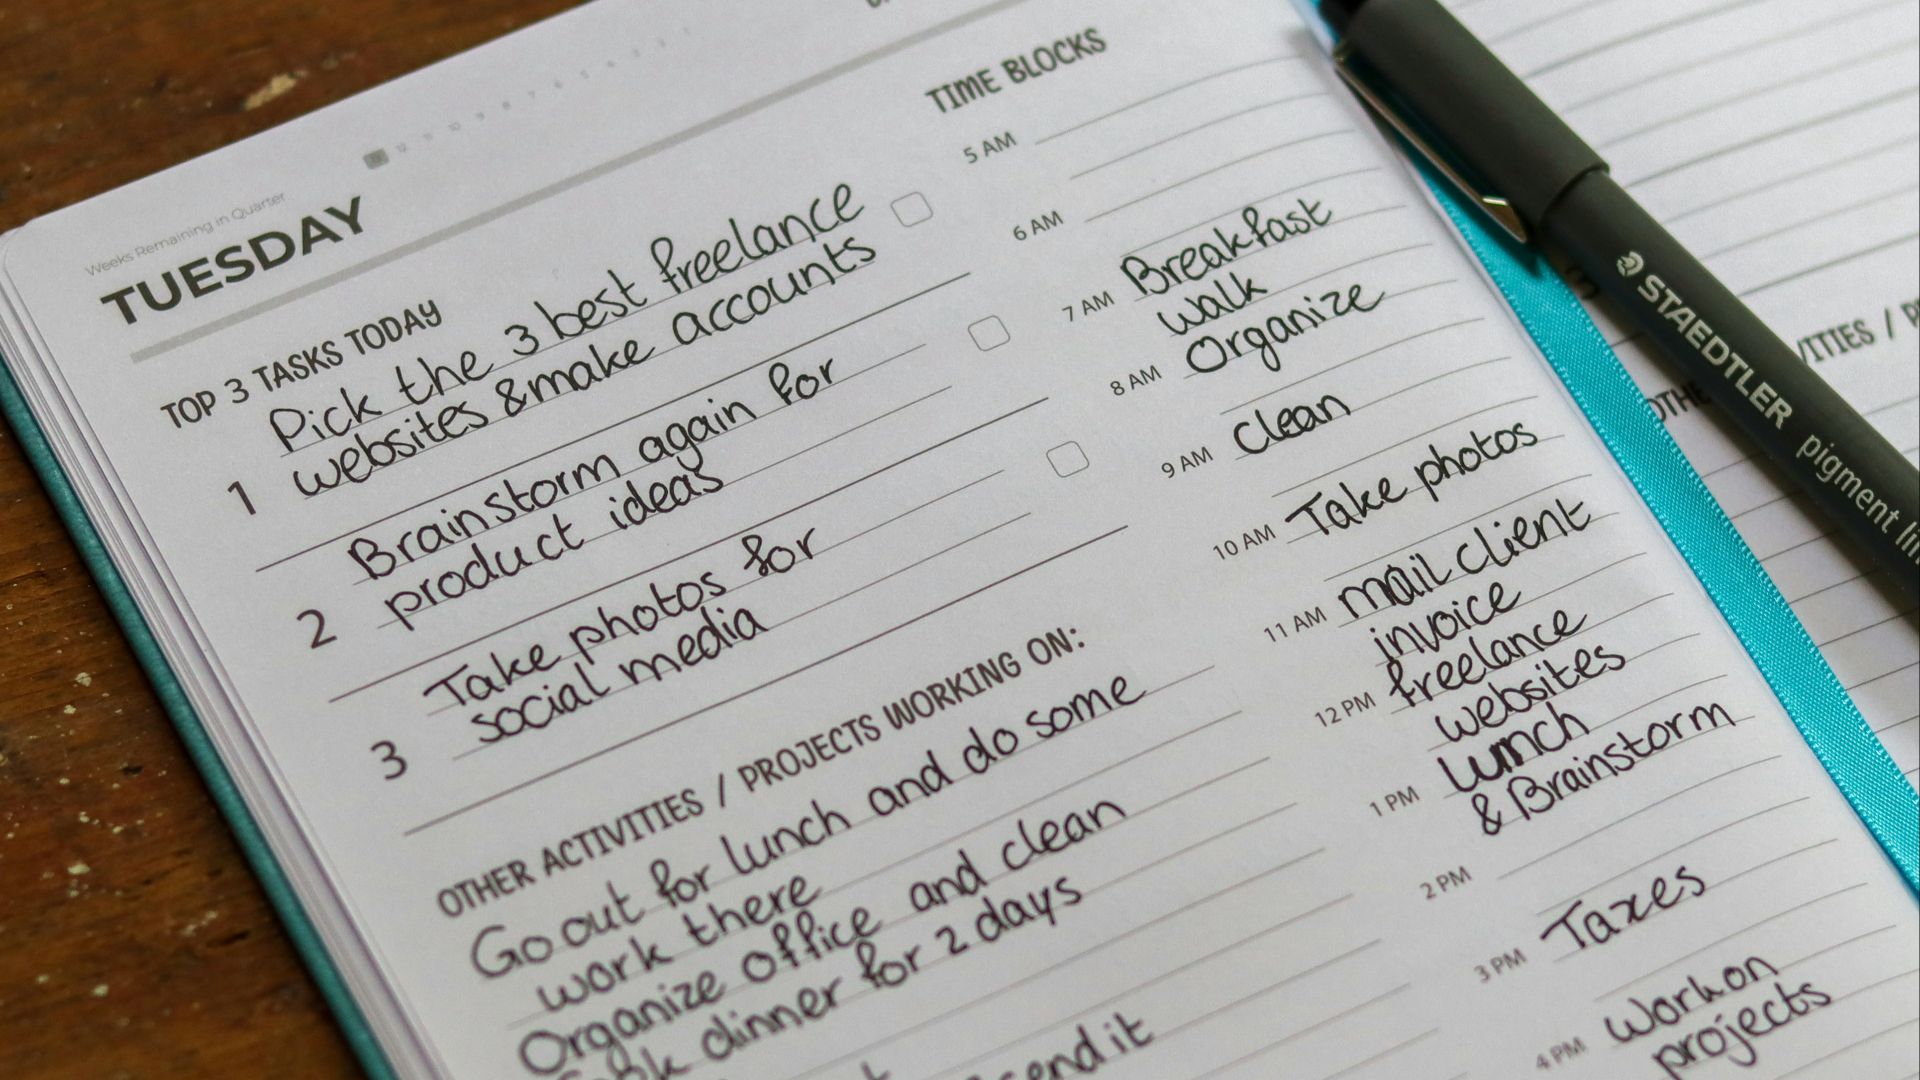 Weeks Remaining in Quarter
TUESDAY
TOP 3 TASKS TODAY
1 Pick the 3 best freelance
websites & make accounts
2 Brainstorm again for
product ideas
3 Take photos for
social media
OTHER ACTIVITIES / PROJECTS WORKING ON:
Go out for lunch and do some
work there
Organize office and clean
dinner for 2 days
send it
TIME BLOCKS
5 AM
6 AM
7 AM Breakfast
walk
8 AM Organize
9 AM Clean
10 AM Take photos
11 AM mail client
invoice
12 PM freelance
websites
1 PM lunch
& Brainstorm
2 PM
3 PM Taxes
4 PM Work on
projects
STAEDTLER pigment